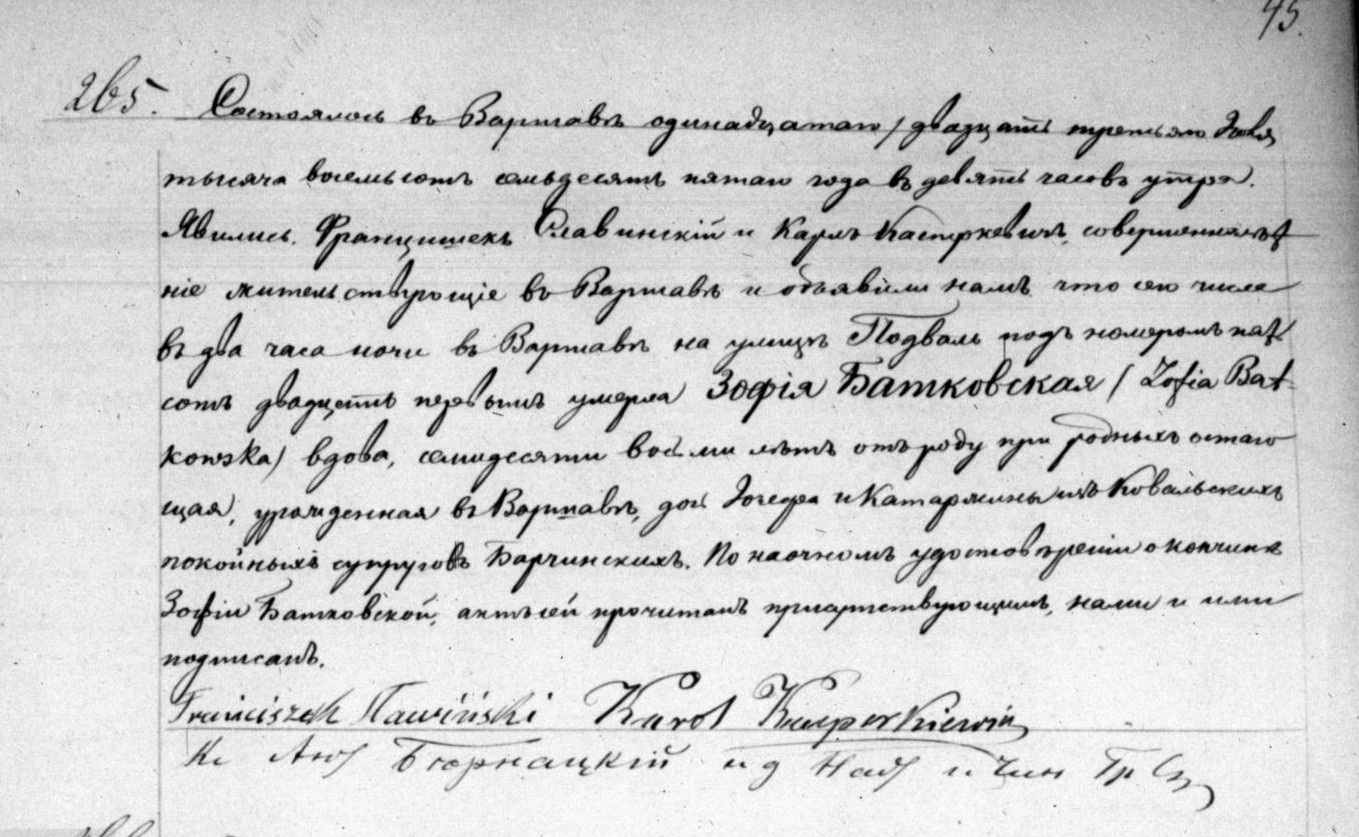 45.
265. Состоялось въ Варшавѣ одинадцатаго / двадцать третьяго
тысяча восемьсотъ семьдесятъ пятаго года въ девять часовъ утра.
Явились. Францишекъ Славинскій и Карлъ совершеннолѣт
ніе жительствующіе въ Варшавѣ и объявили намъ что сего числа
въ два часа ночи въ Варшавѣ на улицѣ Подваль подъ номеромъ пять
сотъ двадцать первымъ умерла Зофія Батковская / Zofia Bat-
kowska / вдова, семидесяти восьми лѣтъ отъ роду при родныхъ остаю
щая, урожденная въ Варшавѣ, дочь Іосефа и Катаржины изъ Ковальскихъ
покойныхъ супруговъ Барчинскихъ. По наочномъ удостовѣреніи о кончинѣ
Зофіи Батковской, актъ сей прочитанъ присутствующимъ, нами и ими
подписанъ.
Franciszek Sławiński Karol Kasperkiewicz
Кс и д и Чин Гр